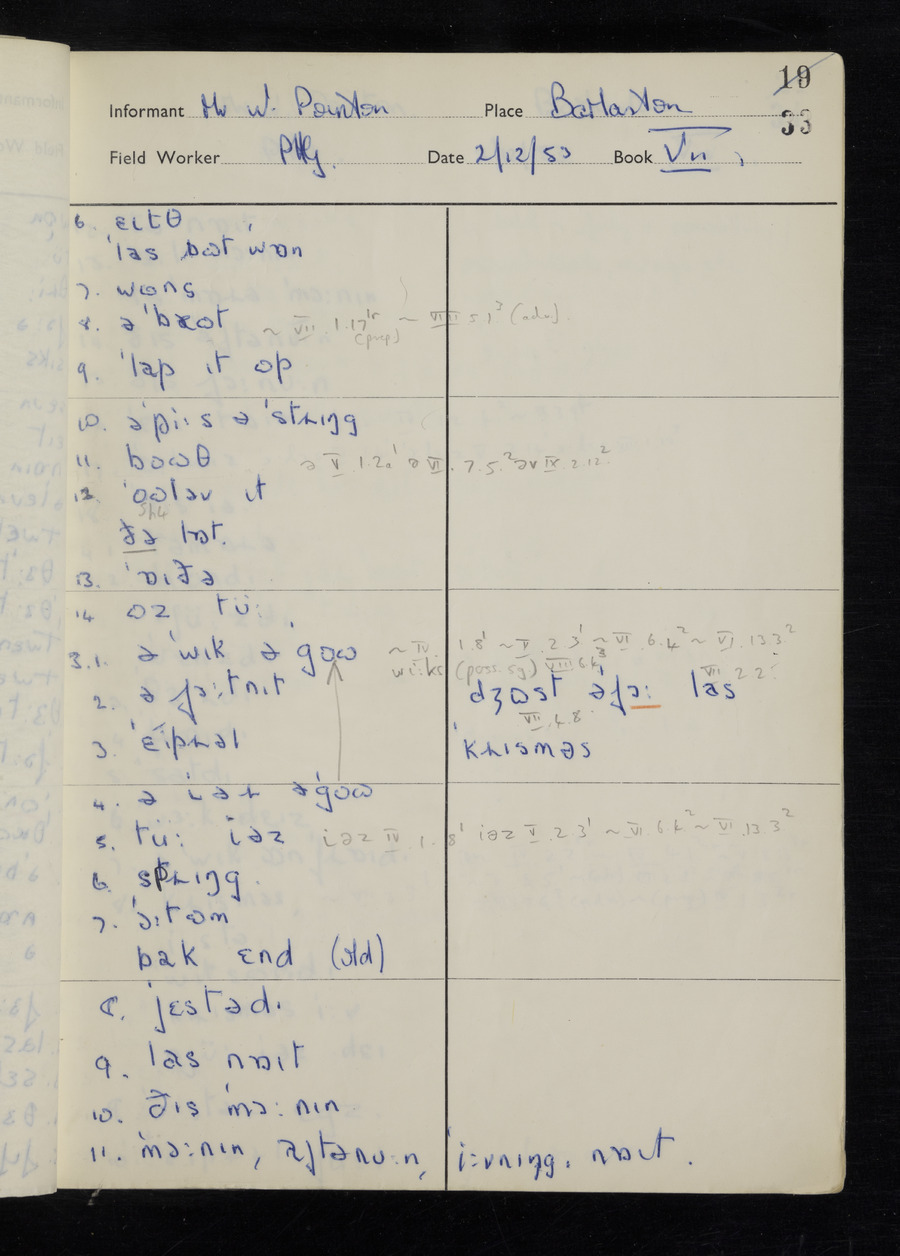 19
33
Informant Mr W. Pointon Place Barlaston
Field Worker PHG. Date 2/12/53 Book VII
6. ɛɪtθ
ˈlas bɒt wɒn
7. wɒns
8. əˈbaɒt ~ VII 1.17 (prep) ~ 5.1³ (adv).
9. ˈlap ɪt ɒp
10. əˈpiːs ə ˈstrɪŋg
11. bɔʊθ ə V 1.2a¹ ə VI. 7.5.² əv IX 2.12²
12. ˈɔʊləv ɪt
ðə lɒt.
13. ˈɒɪðə
14 ɒz tüː
3.1. ə ˈwik ə gɔʊ ~ IV 1.8¹ ~ V 2.3¹ ~ VI 6.k² ~ VI 13.3²
wiːks (poss. sg) VIII
2. ə fɔːtnɪt dʒɒst əfɔː las VII 2.2
VII.4.8
3. ˈɛɪprəl ˈkrɪsməs
4. ə iər əˈgɔʊ
5. tüː iəz iəz IV 1.8¹ iəz V 2.3¹ ~ VI 6.k² ~ VI 13.3²
6. sprɪŋg.
7. ˈɔːtəm
bak ɛnd (old)
8. jɛstədɪ
9. las nɒɪt
10. ðɪs ˈmɔːnɪn
11. ˈmɔːnɪn, aftənuːn, ˈiːvnɪŋg. nɒɪt.